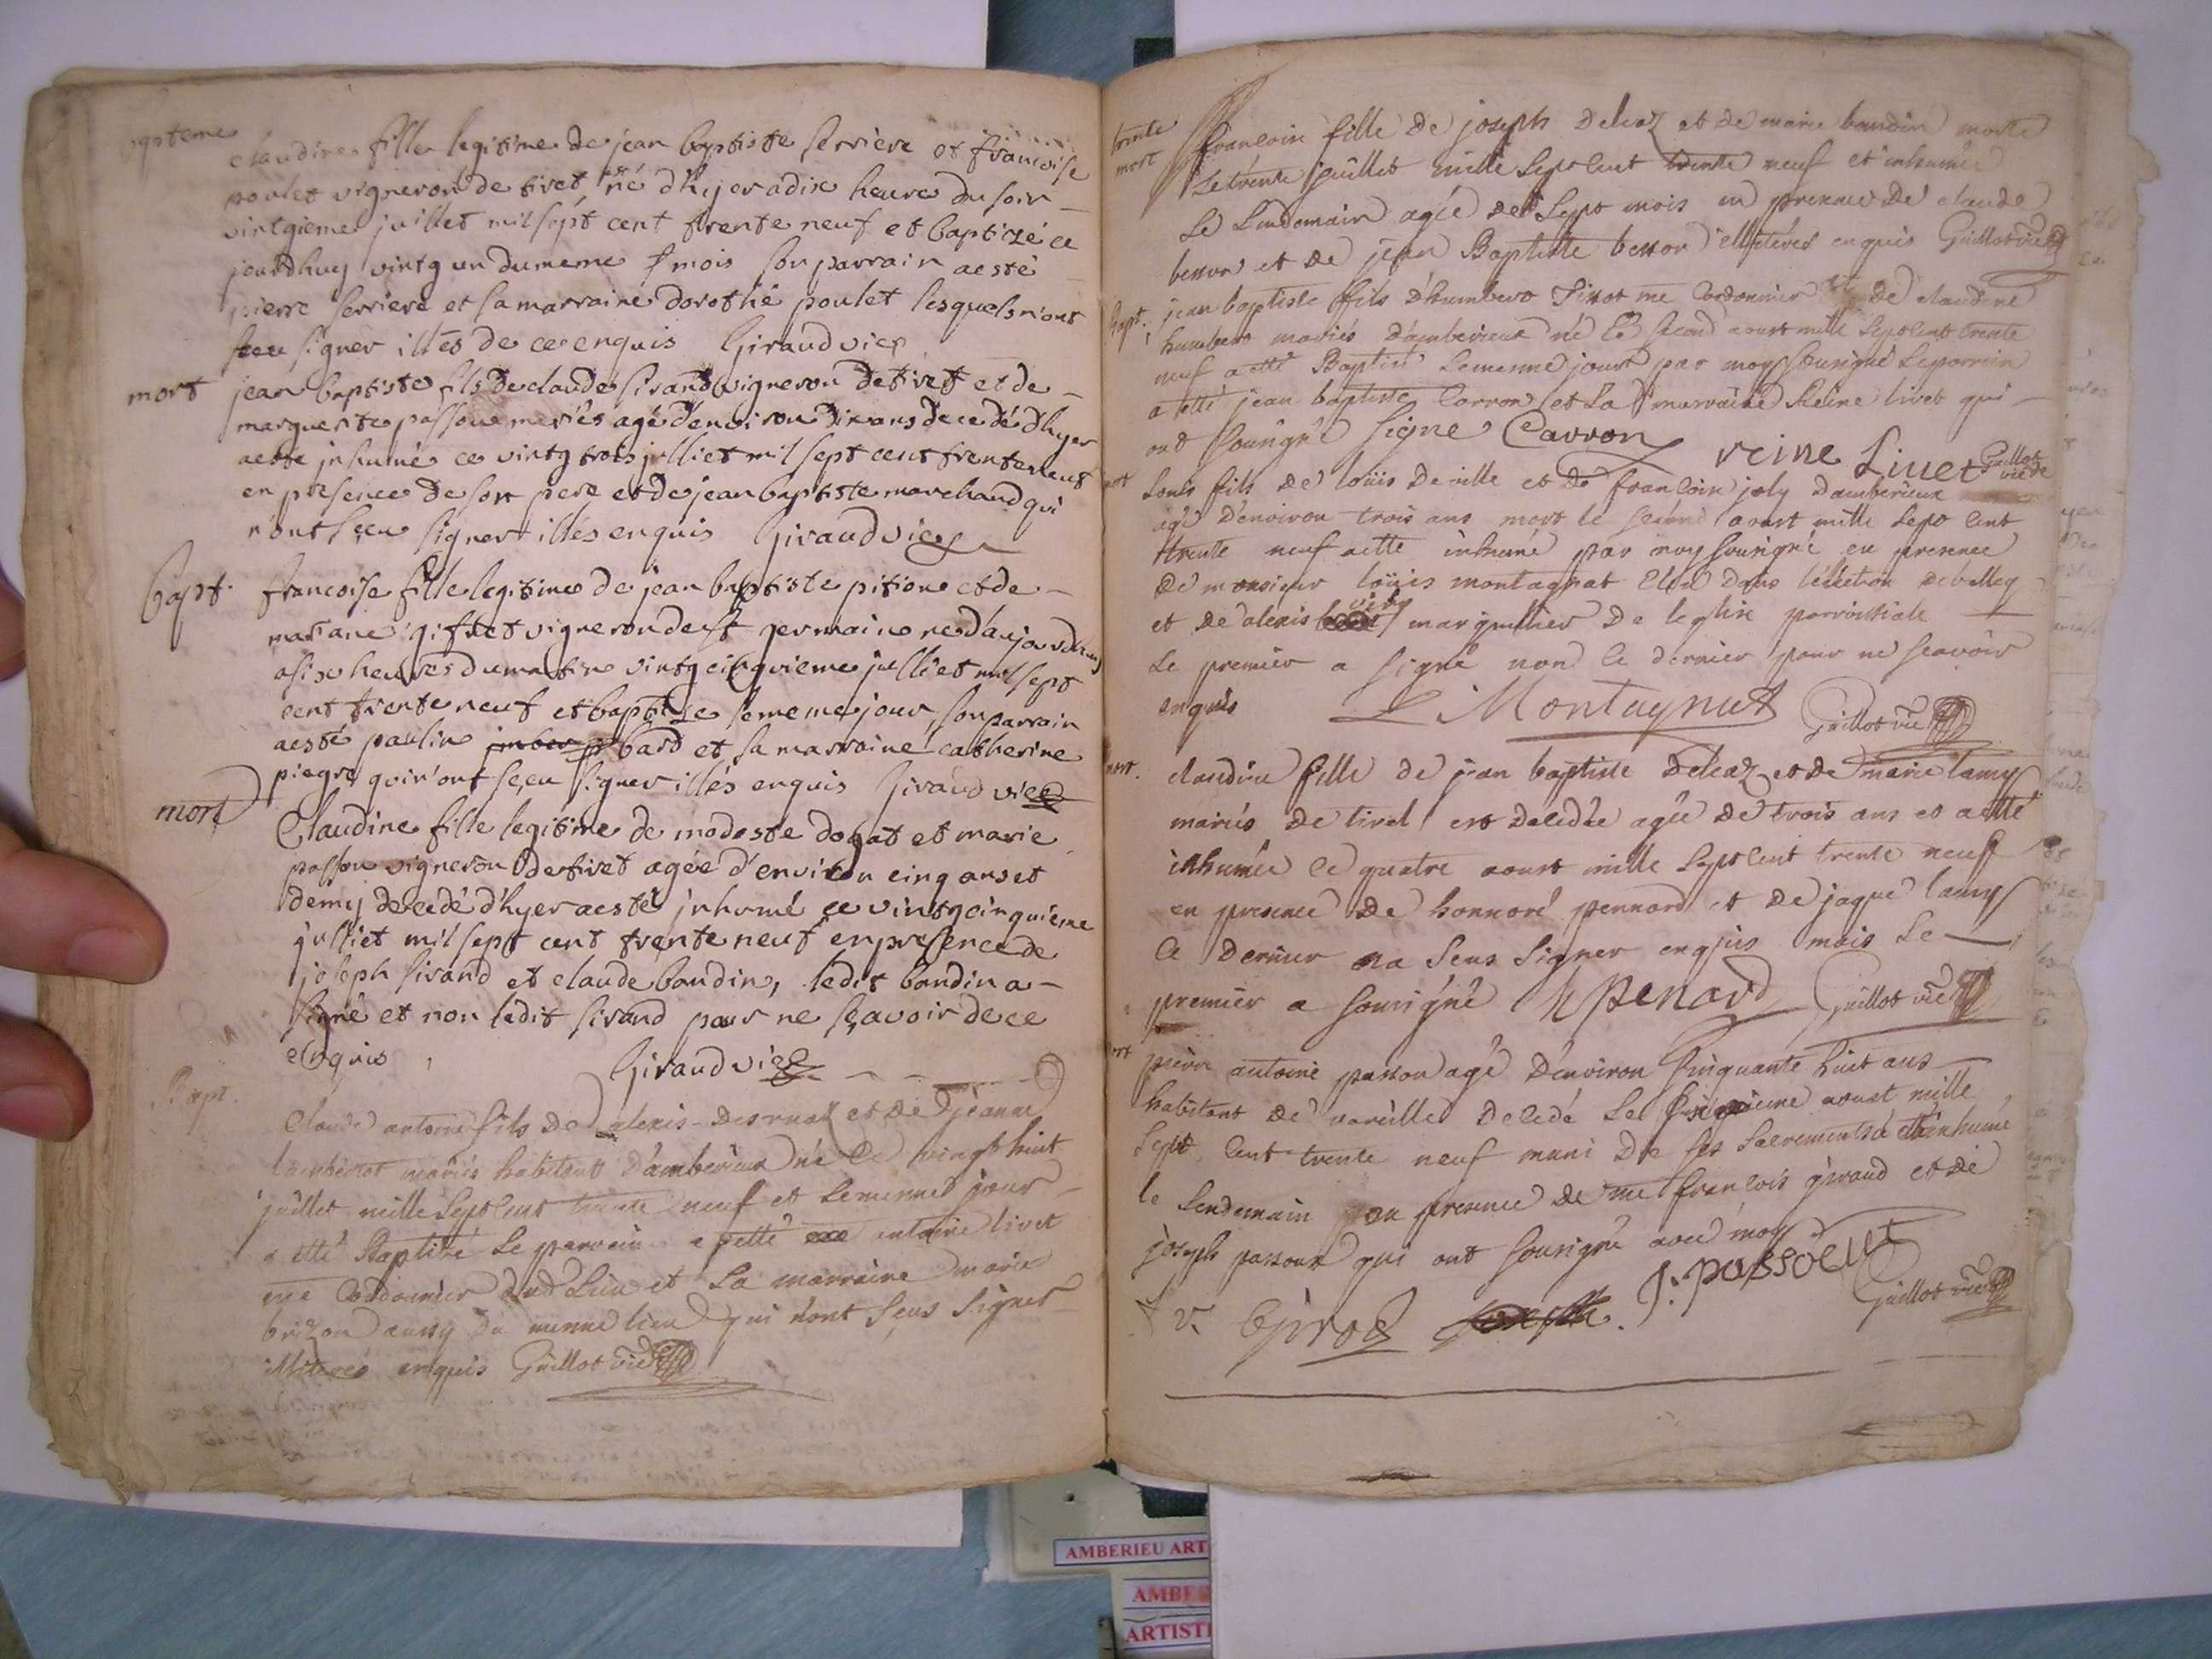 claudine fille legitime de jean baptiste serriere et francoise
poulet vigneron de tiret né d'hyer a dix heures du soir
vintgieme juillet mil sept cent trente neuf et baptizé ce
jourdhuy vintg un du meme mois son parrain a esté
pierre serriere et sa marraine dorothé poulet lesquels n'ont
sceu signer illés de ce enquis Giraud vice
mort
jean baptiste fils de claude sirand vigneron de tiret et de
marguerite passou mariés agé d'environ dix ans decedé d'hyer
a esté inhumé ce vintg trois julliet mil sept cent trente neuf
en presence de son pere et de jean baptiste marchand qui
n'ont sceu signer illés enquis Giraud vice
bapt.
francoise fille legitime de jean baptiste pition et de
mariane gifret vigneron de st germain né d'aujourdhuy
a six heures du matin vintg cinqvieme julliet mil sept
cent trente neuf et baptizé le meme jour, son parrain
a esté paulin bard et sa marraine catherine
piegre qui n'ont sceu signer illés enquis Giraud vice
mort
Claudine fille legitime de modeste dogat et marie
passou vigneron de tiret agée d'environ cinq ans et
demij decedé d'hyer a esté inhumé ce vintg cinquieme
julliet mil sept cent trente neuf en presence de
joseph sirand et claude baudin, ledit baudin a
signé et non ledit sirand pour ne sçavoir de ce
enquis Giraud vice
Bapt.
Claude antoine fils de alexis et de jeanne
mariés habitant d'amberieux né le vingt huit
juillet mille sept cent trente neuf et le mesme jour
a etté Baptisé le parrain a etté antoine livet
me Cordonnier dud Lieu et La marraine marie
brizon aussy du mesme lieu qui n'ont seus signer
illiterés enquis Guillot vic
trente
mort
francoise fille de joseph deleaz et de marie baudin morte
le trente juillet mille sept cent trente neuf et inhumée
le Lendemain agée de sept mois en presence de claude
besson et de jean Baptiste besson illiterés enquis Guillot vic
bapt.
jean baptiste fils d'humbert me Cordonnier et de claudine
humbert mariés d'amberieux né le second aoust mille sept cent trente
neuf a etté Baptisé le mesme jour par moy sousigné Le parrein
a etté jean baptiste Carron et La marraine Reine livet qui
ont sousigné signe Carron reine Livet Guillot vic
Louis fils de Louis Deville et de francoise joly d'amberieux
agé d'environ trois ans mort le second aoust mille sept cent
trente neuf a etté inhumé par moy sousigné en presence
de monsieur Loüis montagnat Elu dans l'élection de belley
et de alexis marguillier de leglise parroissiale
Le premier a signé non le dernier pour ne scavoir
enquis L Montagnat Guillot vic
mort.
claudine fille de jean baptiste deleaz et de marie lamy
mariés de tiret est decedée agée de trois ans et a etté
inhumée le quatre aoust mille sept cent trente neuf
en presence de honnoré pennard et de jaque lamy
le dernier na seus signer enquis mais le
premier a sousigné h penard Guillot vic
pierre antoine passou agé d'environ cinquante huit ans
habitant de vareilles decedé le cinquieme aoust mille
sept cent trente neuf muni de ses sacrements a etté inhumé
le Lendemain en presence de me francois giraud et de
joseph passoux qui ont sousigné avec moy
J. passoeux
Guillot vic
AMBERIEU ART
AMBE
ARTISTI